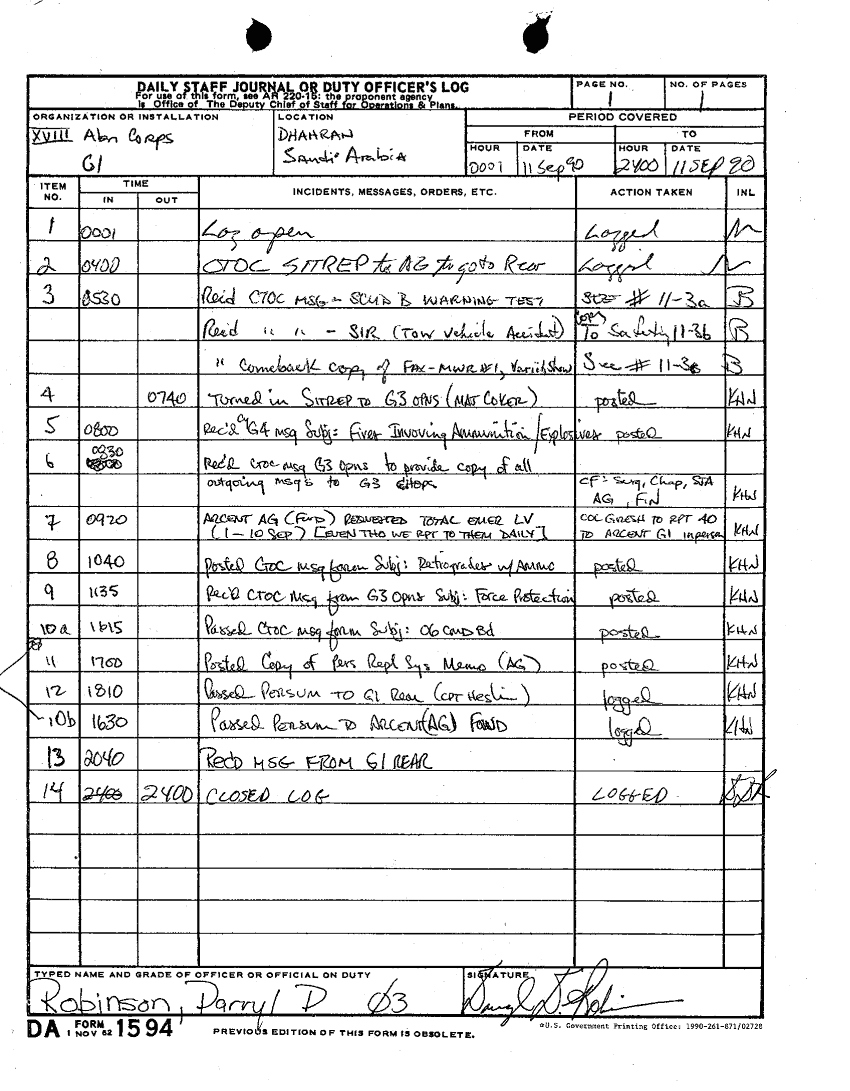 DAILY STAFF JOURNAL OR DUTY OFFICER'S LOG
For use of this form, see AR 220-15: the proponent agency
is Office of The Deputy Chief of Staff for Operations & Plans.
PAGE NO.
1
NO. OF PAGES
1
ORGANIZATION OR INSTALLATION
XVIII Abn Corps
G1
LOCATION
DHAHRAN
Saudi Arabia
PERIOD COVERED
FROM TO
HOUR DATE HOUR DATE
0001 11 Sep 90 2400 11 SEP 90
ITEM NO. TIME IN OUT INCIDENTS, MESSAGES, ORDERS, ETC. ACTION TAKEN INL
1 0001 Log open Logged
2 0400 CTOC SITREP to AG to go to Rear Logged
3 0530 Rc'd CTOC MSG - SCUD B WARNING TEST See # 11-3a B
Rc'd " " - SIR (Tow Vehicle Accident) Copy To Safety 11-3b B
" Comeback copy of FAX-MWR #1, Variety Show See # 11-3c B
4 0740 Turned in SITREP TO G3 OPNS (MAJ COKER) posted KHN
5 0800 Rec'd G4 msg Subj: Fires Invoving Ammunition/Explosives posted KHN
6 0830 Rec'd CTOC msg G3 Opns to provide copy of all
outgoing msg's to G3 CF: Surg, Chap, SJA
AG, FIN KHN
7 0920 ARCENT AG (Ford) REQUESTED TOTAL EMER LV COL GIRESH TO RPT 40
(1-10 SEP) [EVEN THO WE RPT TO THEM DAILY] TO ARCENT G1 in person KHN
8 1040 Posted CTOC msg form Subj: Retrogrades w/Ammo posted KHN
9 1135 Rec'd CTOC Msg from G3 Opns Subj: Force Protection posted KHN
10a 1615 Passed CTOC msg form Subj: O6 Cmd Bd posted KHN
11 1700 Posted Copy of Pers Repl Sys Memo (AG) posted KHN
12 1810 Passed PERSUM TO G1 Rear (CPT Heslin) logged KHN
10b 1630 Passed PERSUM TO ARCENT (AG) FORD logged KHN
13 2040 Rec'd MSG FROM G1 REAR
14 2400 2400 CLOSED LOG LOGGED
TYPED NAME AND GRADE OF OFFICER OR OFFICIAL ON DUTY
Robinson, Darryl D O3
SIGNATURE
DA FORM 1 NOV 62 1594
PREVIOUS EDITION OF THIS FORM IS OBSOLETE.
☆U.S. Government Printing Office: 1990-261-871/02728